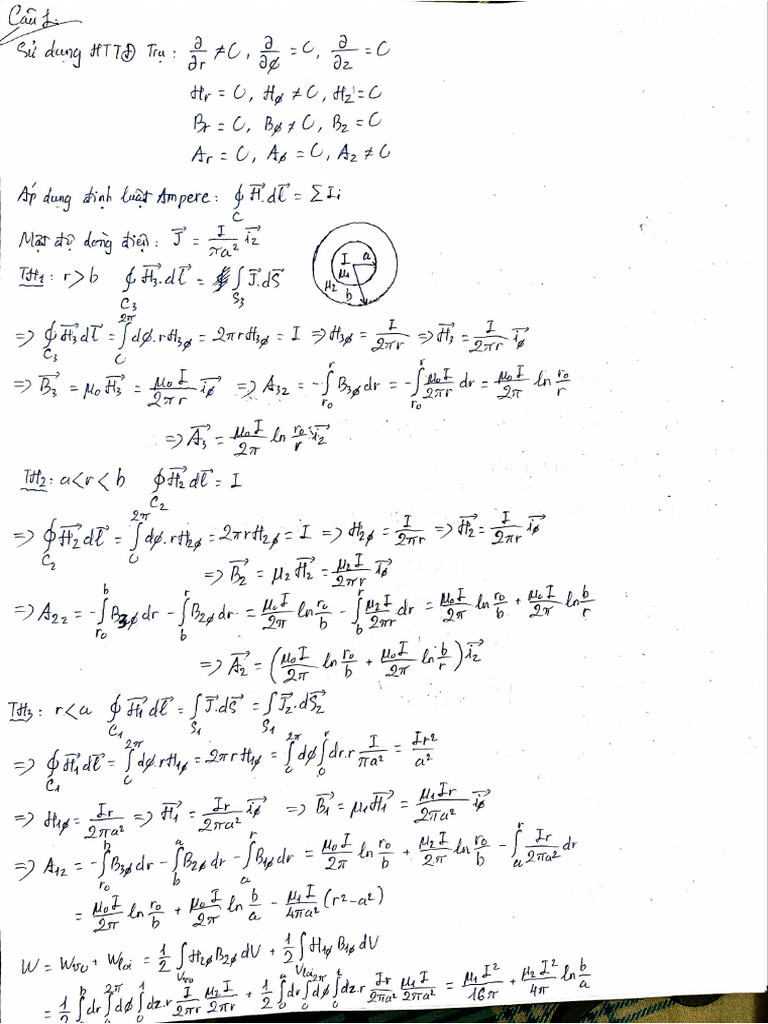 Câu 1.
Sử dụng HTTĐ Trụ: ∂/∂r ≠ 0, ∂/∂φ = 0, ∂/∂z = 0
Hr = 0, Hφ ≠ 0, Hz = 0
Br = 0, Bφ ≠ 0, Bz = 0
Ar = 0, Aφ = 0, Az ≠ 0
Áp dụng định luật Ampere: ∮_C H⃗.dl⃗ = ΣIi
Mật độ dòng điện: J⃗ = I/(πa²) i⃗z
I a μ1 μ2 b
TH1: r > b ∮_C3 H⃗3.dl⃗ = ∫_S3 J⃗.dS⃗
=> ∮_C3 H⃗3 dl⃗ = ∫_0^2π dφ.rH3φ = 2πrH3φ = I => H3φ = I/(2πr) => H⃗3 = I/(2πr) i⃗φ
=> B⃗3 = μ0 H⃗3 = μ0I/(2πr) i⃗φ => A3z = -∫_r0^r B3φ dr = -∫_r0^r μ0I/(2πr) dr = μ0I/(2π) ln r0/r
=> A⃗3 = μ0I/(2π) ln r0/r i⃗z
TH2: a < r < b ∮_C2 H⃗2 dl⃗ = I
=> ∮_C2 H⃗2 dl⃗ = ∫_0^2π dφ.rH2φ = 2πrH2φ = I => H2φ = I/(2πr) => H⃗2 = I/(2πr) i⃗φ
=> B⃗2 = μ2 H⃗2 = μ2I/(2πr) i⃗φ
=> A2z = -∫_r0^b B3φ dr - ∫_b^r B2φ dr = μ0I/(2π) ln r0/b - ∫_b^r μ2I/(2πr) dr = μ0I/(2π) ln r0/b + μ0I/(2π) ln b/r
=> A⃗2 = (μ0I/(2π) ln r0/b + μ0I/(2π) ln b/r) i⃗z
TH3: r < a ∮_C1 H⃗1 dl⃗ = ∫_S1 J⃗.dS⃗ = ∫_S1 J⃗2.dS⃗2
=> ∮_C1 H⃗1 dl⃗ = ∫_0^2π dφ.rH1φ = 2πrH1φ = ∫_0^2π dφ ∫_0^r dr.r I/(πa²) = Ir²/a²
=> H1φ = Ir/(2πa²) => H⃗1 = Ir/(2πa²) i⃗φ => B⃗1 = μ1H⃗1 = μ1Ir/(2πa²) i⃗φ
=> A1z = -∫_r0^b B3φ dr - ∫_b^a B2φ dr - ∫_a^r B1φ dr = μ0I/(2π) ln r0/b + μ2I/(2π) ln r0/b - ∫_a^r Ir/(2πa²) dr
= μ0I/(2π) ln r0/b + μ0I/(2π) ln b/a - μ1I/(4πa²) (r² - a²)
W = Wvo + Wloi = 1/2 ∫_Vvo H2φ B2φ dV + 1/2 ∫_Vloi H1φ B1φ dV
= 1/2 ∫_a^b dr ∫_0^2π dφ ∫_0^1 dz.r I/(2πr) μ2I/(2πr) + 1/2 ∫_0^a dr ∫_0^2π dφ ∫_0^1 dz.r Ir/(2πa²) μ1I/(2πa²) = μ1I²/(16π) + μ2I²/(4π) ln b/a